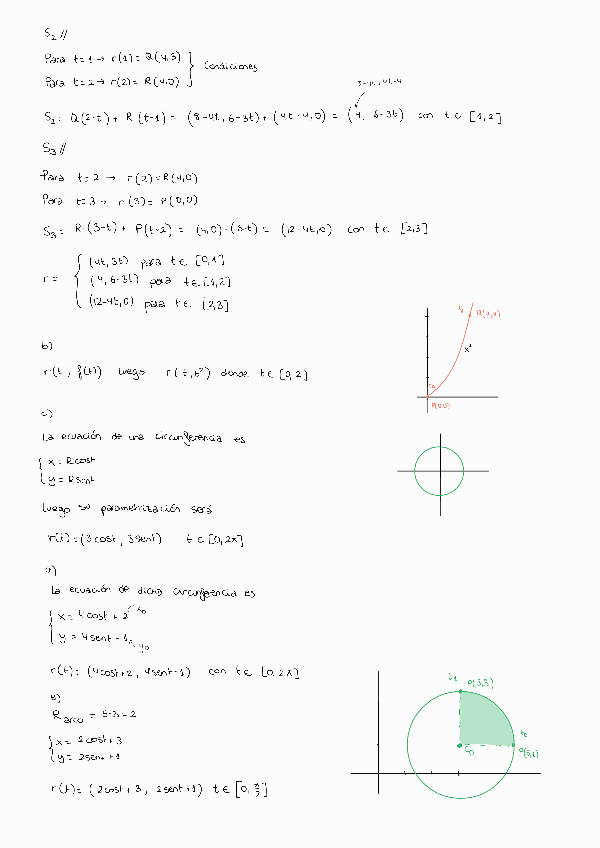 S₂ //
Para t=1 → r(1) = Q(4,3)
Para t=2 → r(2) = R(4,0)
Condiciones
8-4t+4t-4
S₂ = Q(2-t) + R(t-1) = (8-4t, 6-3t) + (4t-4,0) = (4, 6-3t) con t ∈ [1,2]
S₃ //
Para t=2 → r(2) = R(4,0)
Para t=3 → r(3) = P(0,0)
S₃ = R·(3-t) + P(t-2) = (4,0)·(3-t) = (12-4t,0) con t ∈ [2,3]
r = { (4t, 3t) para t ∈ [0,1]
(4, 6-3t) para t ∈ [1,2]
(12-4t,0) para t ∈ [2,3]
b)
r(t, f(t)) luego r(t, t²) donde t ∈ [0,2]
t₁ Q(2,4)
x²
t₀
P(0,0)
c)
La ecuación de una circunferencia es
{ x = R cost
y = R sent
Luego su parametrización será
r(t) = (3cost, 3sent) t ∈ [0,2π]
d)
La ecuación de dicha circunferencia es
{ x = 4cost + 2 x₀
y = 4sent - 1 y₀
r(t) = (4cost+2, 4sent-1) con t ∈ [0,2π]
e)
R arco = 5-3 = 2
{ x = 2cost + 3
y = 2sent + 1
r(t) = (2cost + 3, 2sent + 1) t ∈ [0, π/2]
t₁ P(3,3)
t₀
Q(5,1)
C₀